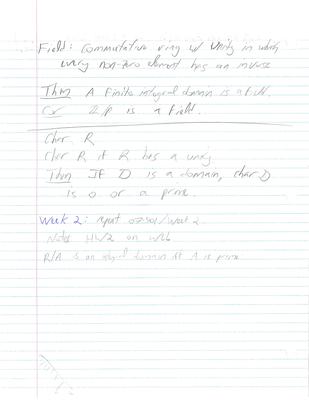 Field: Commutative ring w/ Unity in which
every non-zero element has an inverse
Thm A finite integral domain is a field.
Cor Z/p is a field.
Char R
Char R if R has a unity
Thm If D is a domain, char D
is 0 or a prime.
Week 2: input 07-S01/Week 2
Notes HW2 on web
R/A is an integral domain iff A is prime